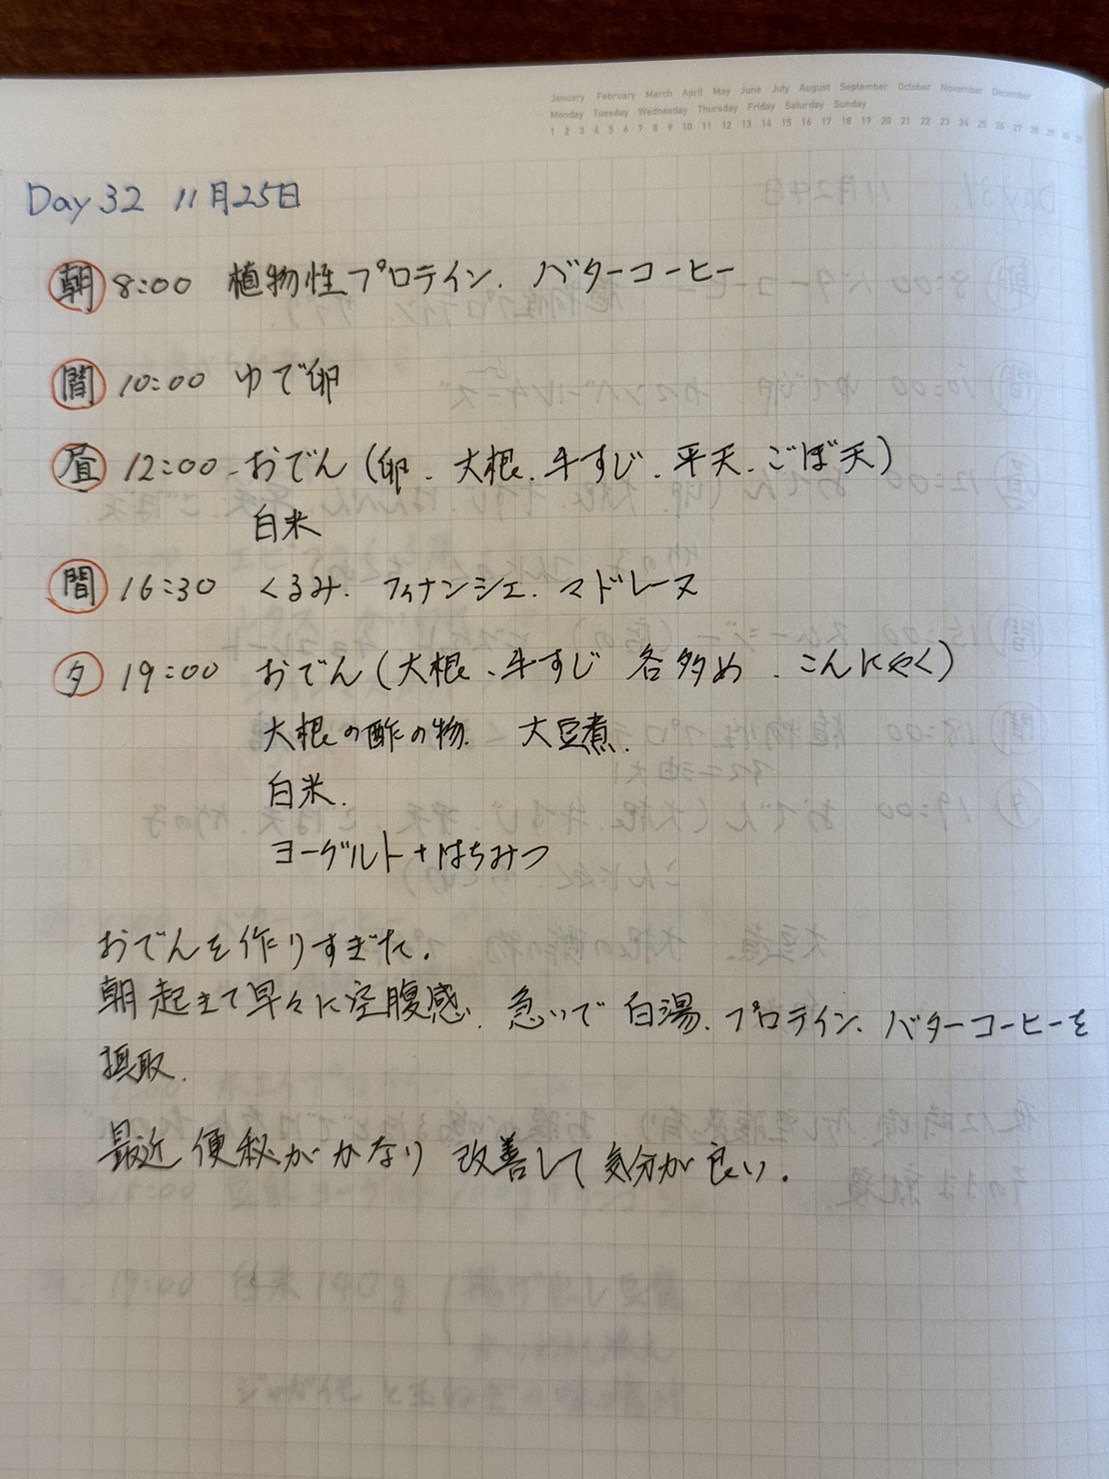 January February March April May June July August September October November December
Monday Tuesday Wednesday Thursday Friday Saturday Sunday
1 2 3 4 5 6 7 8 9 10 11 12 13 14 15 16 17 18 19 20 21 22 23 24 25 26 27 28 29 30 31
Day 32 11月25日
朝 8:00 植物性プロテイン. バターコーヒー
間 10:00 ゆで卵
昼 12:00 おでん(卵. 大根. 牛すじ. 平天. ごぼ天)
白米
間 16:30 くるみ. フィナンシェ. マドレーヌ
夕 19:00 おでん(大根、牛すじ 各多め. こんにゃく)
大根の酢の物. 大豆煮.
白米.
ヨーグルト+はちみつ
おでんを作りすぎた.
朝起きて早々に空腹感. 急いで白湯. プロテイン. バターコーヒーを
摂取.
最近便秘がかなり改善して気分が良い.